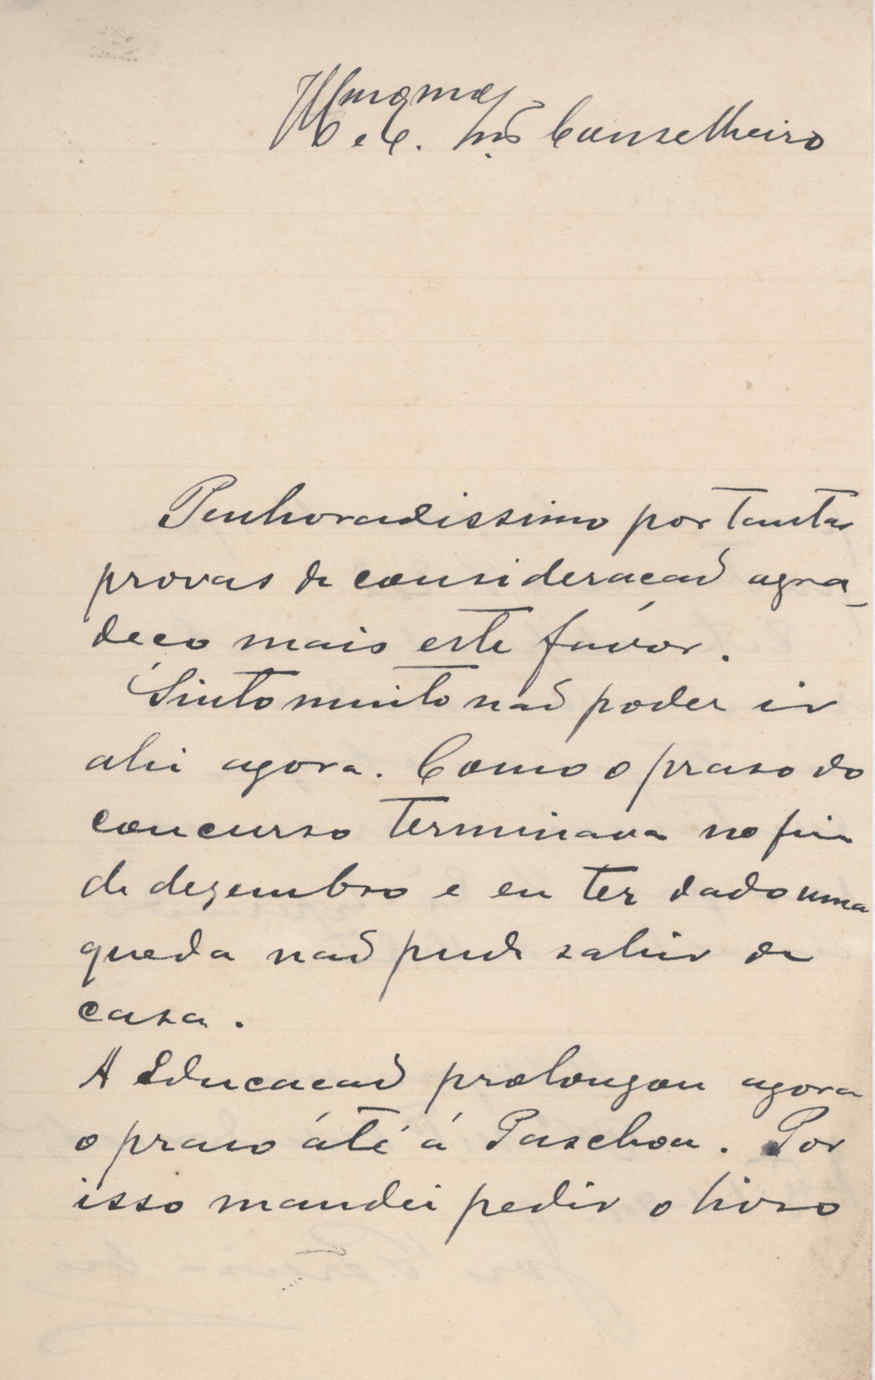 Illmo e Exmo Snr Conselheiro
Penhoradissimo por tantas
provas de consideracaõ agra_
deco mais este favor.
Sinto muito naõ poder ir
ahi agora. Como o praso do
concurso terminava no fim
de dezembro e eu ter dado uma
queda naõ pude sahir de
casa.
A Educacaõ prolongou agora
o praso áté á Paschoa. Por
isso mandei pedir o livro